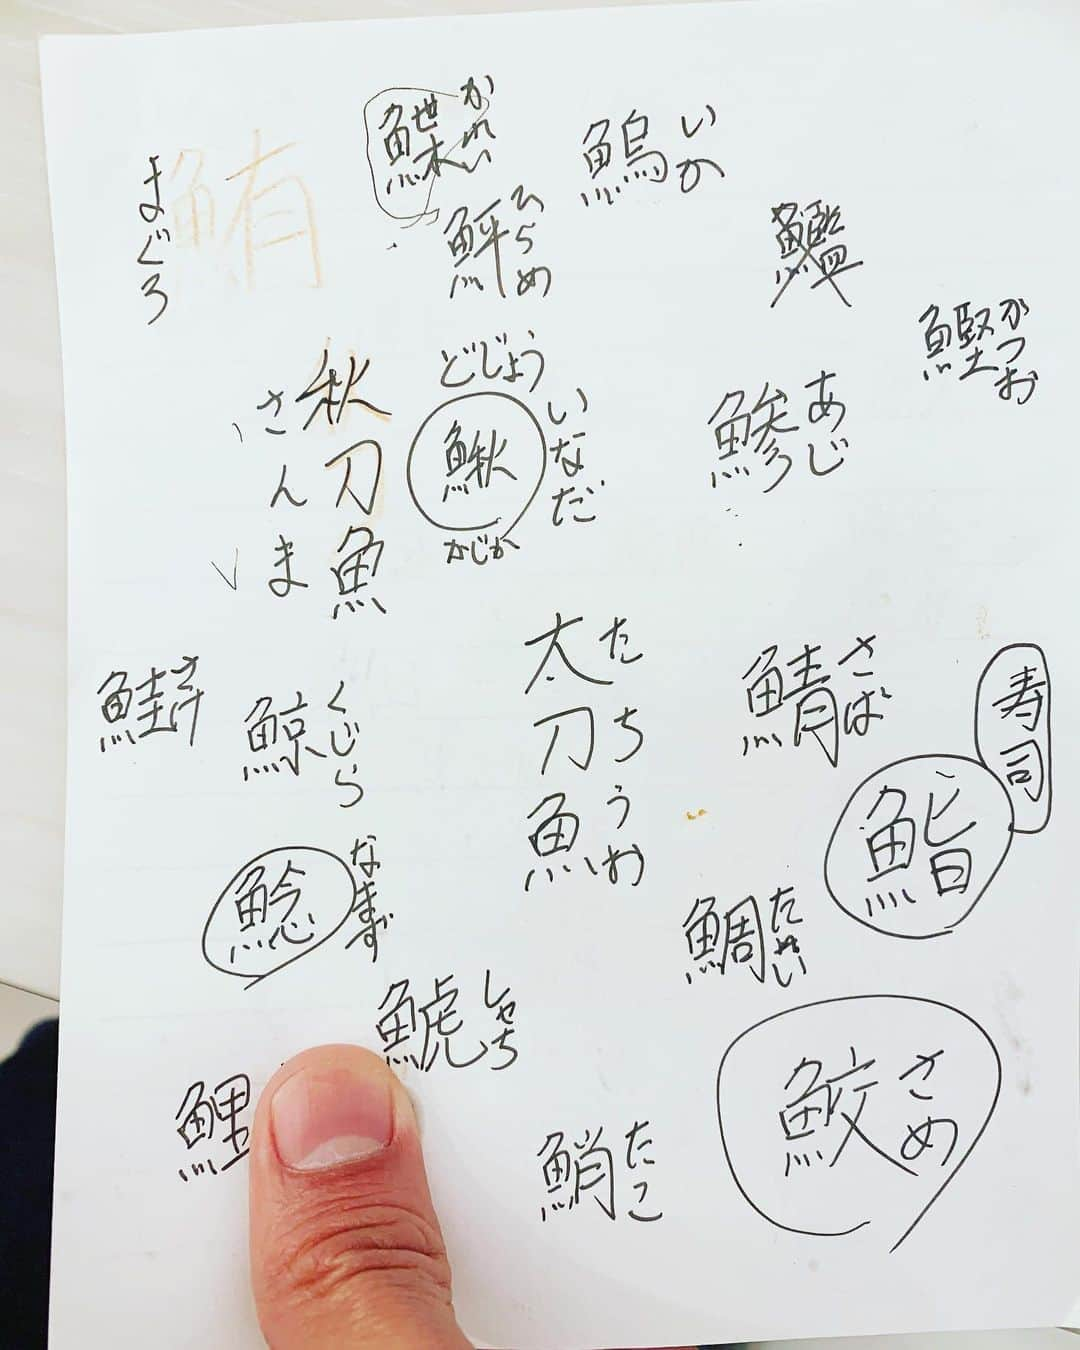 鮪
まぐろ
鰈
かれい
鮃
ひらめ
いか
鰹
かつお
秋刀魚
さんま
どじょう
鰍
いなだ
かじか
鯵
あじ
鮭
さけ
鯨
くじら
太刀魚
たちうお
鯖
さば
寿司
鮨
鯰
なまず
鯛
たい
鯱
しゃち
鯉
鮹
たこ
鮫
さめ